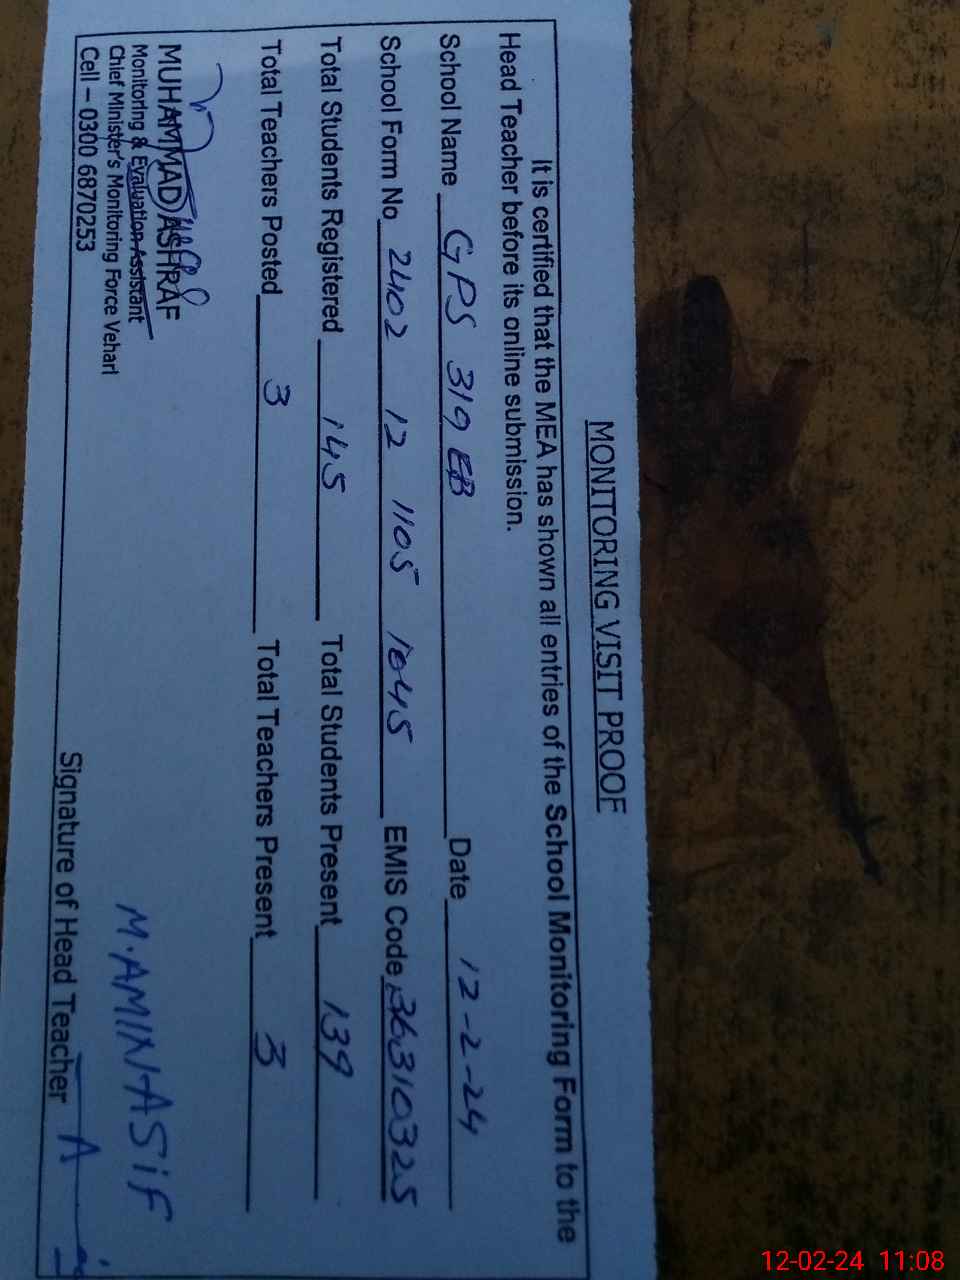 MONITORING VISIT PROOF
It is certified that the MEA has shown all entries of the School Monitoring Form to the
Head Teacher before its online submission.
School Name GPS 319 EB Date 12-2-24
School Form No 2402 12 1105 1045 EMIS Code 36310325
Total Students Registered 145 Total Students Present 139
Total Teachers Posted 3 Total Teachers Present 3
MUHAMMAD ASHRAF
Monitoring & Evaluation Assistant
Chief Minister's Monitoring Force Vehari
Cell – 0300 6870253
M.AMIN ASIF
Signature of Head Teacher
12-02-24 11:08